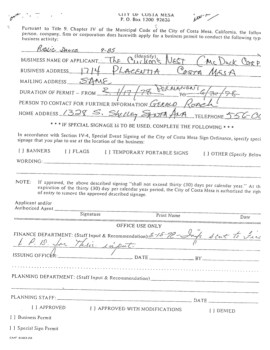 CITY OF COSTA MESA
P. O. Box 1200 92626
Pursuant to Title 9, Chapter IV of the Municipal Code of the City of Costa Mesa, California, the
person, company, firm or corporation does herewith apply for a permit to conduct the
business activity:
(Identify)
BUSINESS NAME OF APPLICANT The Cuckoo's Nest
BUSINESS ADDRESS 1714 PLACENTIA COSTA MESA
MAILING ADDRESS SAME
PERMANENT
DURATION OF PERMIT - FROM
PERSON TO CONTACT FOR FURTHER INFORMATION
HOME ADDRESS 1328 S. TELEPHONE 556-
***IF SPECIAL SIGNAGE IS TO BE USED, COMPLETE THE FOLLOWING ***
In accordance with Section IV-4, Special Event Signing of the City of Costa Mesa Sign Ordinance,
signage that you plan to use at the location of the business:
[ ] BANNERS [ ] FLAGS [ ] TEMPORARY PORTABLE SIGNS [ ] OTHER (Specify
WORDING
NOTE: If approved, the above described signing "shall not exceed thirty (30) days per calendar year."
expiration of the thirty (30) days per calendar year period, the City of Costa Mesa is authorized
of entry to remove the approved described signage.
Applicant and/or
Authorized Agent
Signature Print Name Date
OFFICE USE ONLY
FINANCE DEPARTMENT: (Staff Input & Recommendation) sent to
P.D. for their input
ISSUING OFFICER: DATE
PLANNING DEPARTMENT: (Staff Input & Recommendation)
PLANNING STAFF: DATE
[ ] APPROVED [ ] APPROVED WITH MODIFICATIONS [ ] DENIED
[ ] Business Permit
[ ] Special Sign Permit